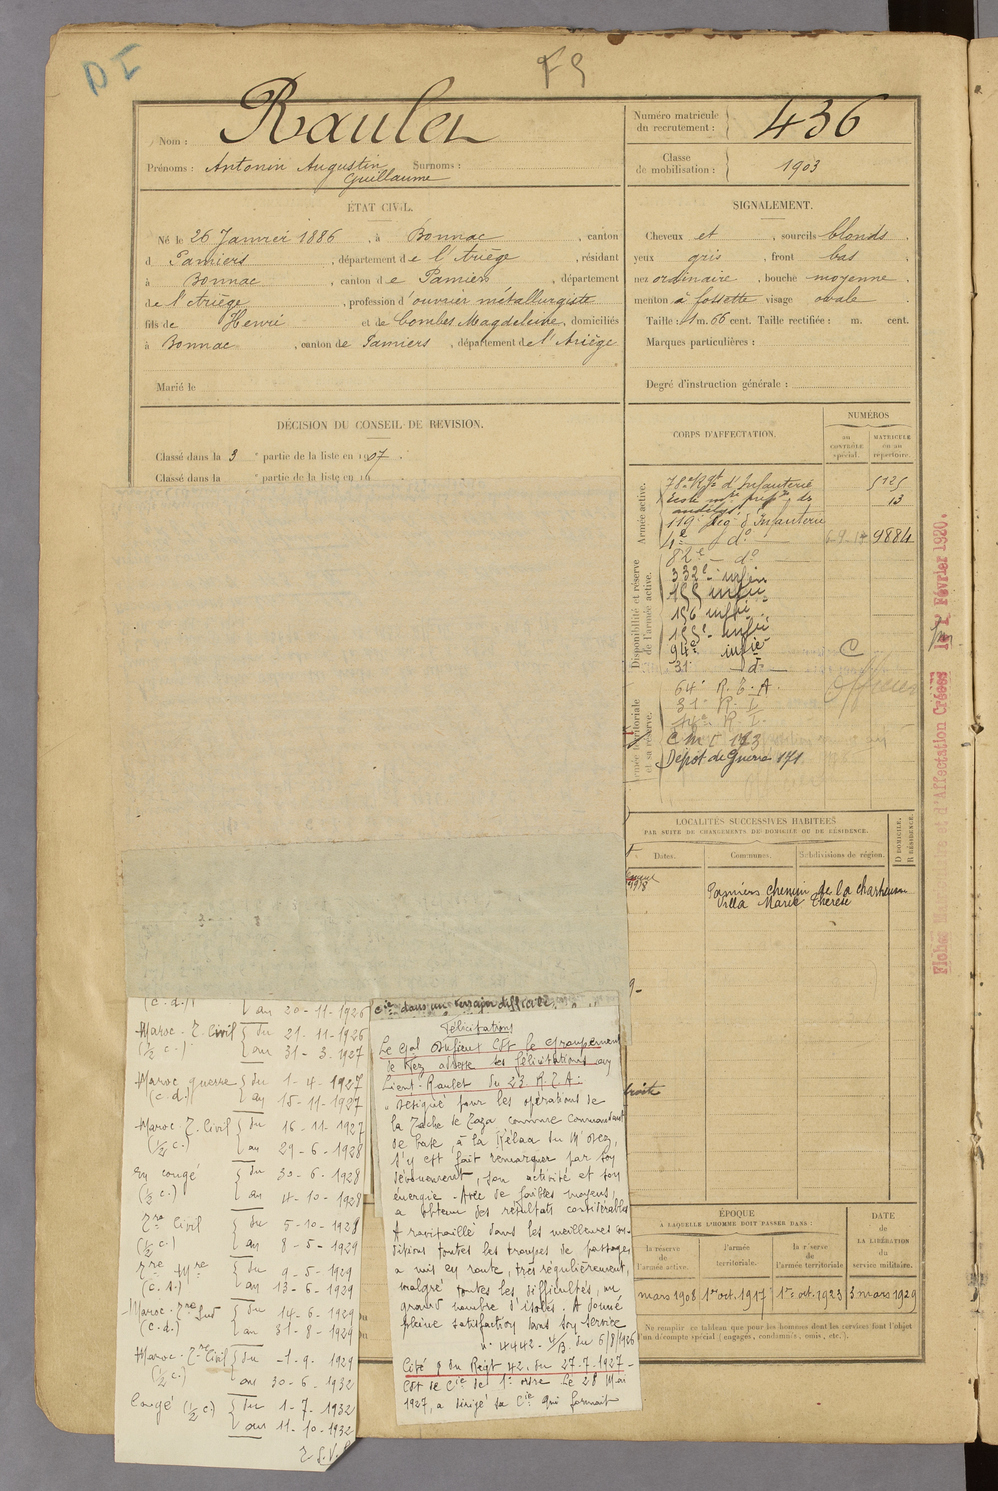 D I
F9
Nom : Raulet
Prénoms : Antonin Augustin Surnoms :
Guillaume
Numéro matricule du recrutement : 436
Classe de mobilisation : 1903
ÉTAT CIVIL.
Né le 26 Janvier 1886, à Bonnac, canton
d Pamiers, département de l'Ariège, résidant
à Bonnac, canton de Pamiers, département
de l'Ariège, profession d'ouvrier métallurgiste
fils de Henri et de Combes Magdeleine, domiciliés
à Bonnac, canton de Pamiers, département de l'Ariège
Marié le
SIGNALEMENT.
Cheveux et, sourcils blonds.
yeux gris, front bas,
nez ordinaire, bouche moyenne,
menton à fossette visage ovale
Taille : 1 m. 66 cent. Taille rectifiée : m. cent.
Marques particulières :
Degré d'instruction générale :
DÉCISION DU CONSEIL DE REVISION.
Classé dans la 3e partie de la liste en 1907.
Classé dans la e partie de la liste en 19
CORPS D'AFFECTATION.
NUMÉROS
au CONTRÔLE spécial.
MATRICULE ou au répertoire.
Armée active.
78e Rgt d'Infanterie 5125
13
119e Reg d'Infanterie
4e do 9884
82e do
Disponibilité et réserve de l'armée active.
332e infie
155 infie
156 infie
155e infie
94e infie C
31 do
Armée territoriale et sa réserve.
64e R. T. A.
31e R. I.
R. I.
Dépôt de Guerre 171
Officier
LOCALITÉS SUCCESSIVES HABITÉES
PAR SUITE DE CHANGEMENTS DE DOMICILE OU DE RÉSIDENCE.
Dates. Communes. Subdivisions de région. D DOMICILE. R RÉSIDENCE.
Pamiers chemin de la chartreuse
Villa Marie Thérèse
Fiches Matricule et d'Affectation Créées le 1er Février 1920.
droite
ÉPOQUE
À LAQUELLE L'HOMME DOIT PASSER DANS :
DATE de LA LIBÉRATION du service militaire.
la réserve de l'armée active. l'armée territoriale. la réserve de l'armée territoriale
mars 1908 1er oct. 1917 1er oct. 1923 3 mars 1929
Ne remplir ce tableau que pour les hommes dont les services font l'objet
d'un décompte spécial (engagés, condamnés, omis, etc.).
(c. d.) au 20-11-1926
Maroc. T. Civil du 21-11-1926
(1/2 c.) au 31-3-1927
Maroc guerre du 1-4-1927
(c. d.) au 15-11-1927
Maroc. T. Civil du 16-11-1927
(1/2 c.) au 29-6-1928
en congé du 30-6-1928
(1/2 c.) au 4-10-1928
Tre Civil du 5-10-1928
(1/2 c.) au 8-5-1929
Tre Mre du 9-5-1929
(c. d.) au 13-6-1929
Maroc. Tre Sud du 14-6-1929
(c. d.) au 31-8-1929
Maroc. Tre Civil du 1-9-1929
(1/2 c.) au 30-6-1932
Congé (1/2 c.) du 1-7-1932
au 11-10-1932
T.S.V.P.
cie dans un terrain difficile,
Félicitations
Le Gal Dufieux Cdt le groupement
de Fez adresse ses félicitations au
Lieut. Raulet du 23 R.T.A :
"Désigné pour les opérations de
la Tache de Taza comme commandant
de base, à la Kélaa du
s'y est fait remarquer par son
dévouement, son activité et son
énergie - Avec de faibles moyens,
a obtenu des résultats considérables
A ravitaillé dans les meilleures con-
ditions toutes les troupes de passage,
a mis en route, très régulièrement,
malgré toutes les difficultés, un
grand nombre d'isolés. A donné
pleine satisfaction dans son service
n° 4442-4/B. du 6/8/1926
Cité O du Régt 42. du 27-7-1927 -
Cdt de Cie de 1er ordre Le 28 Mai
1927, a dirigé sa Cie qui formait